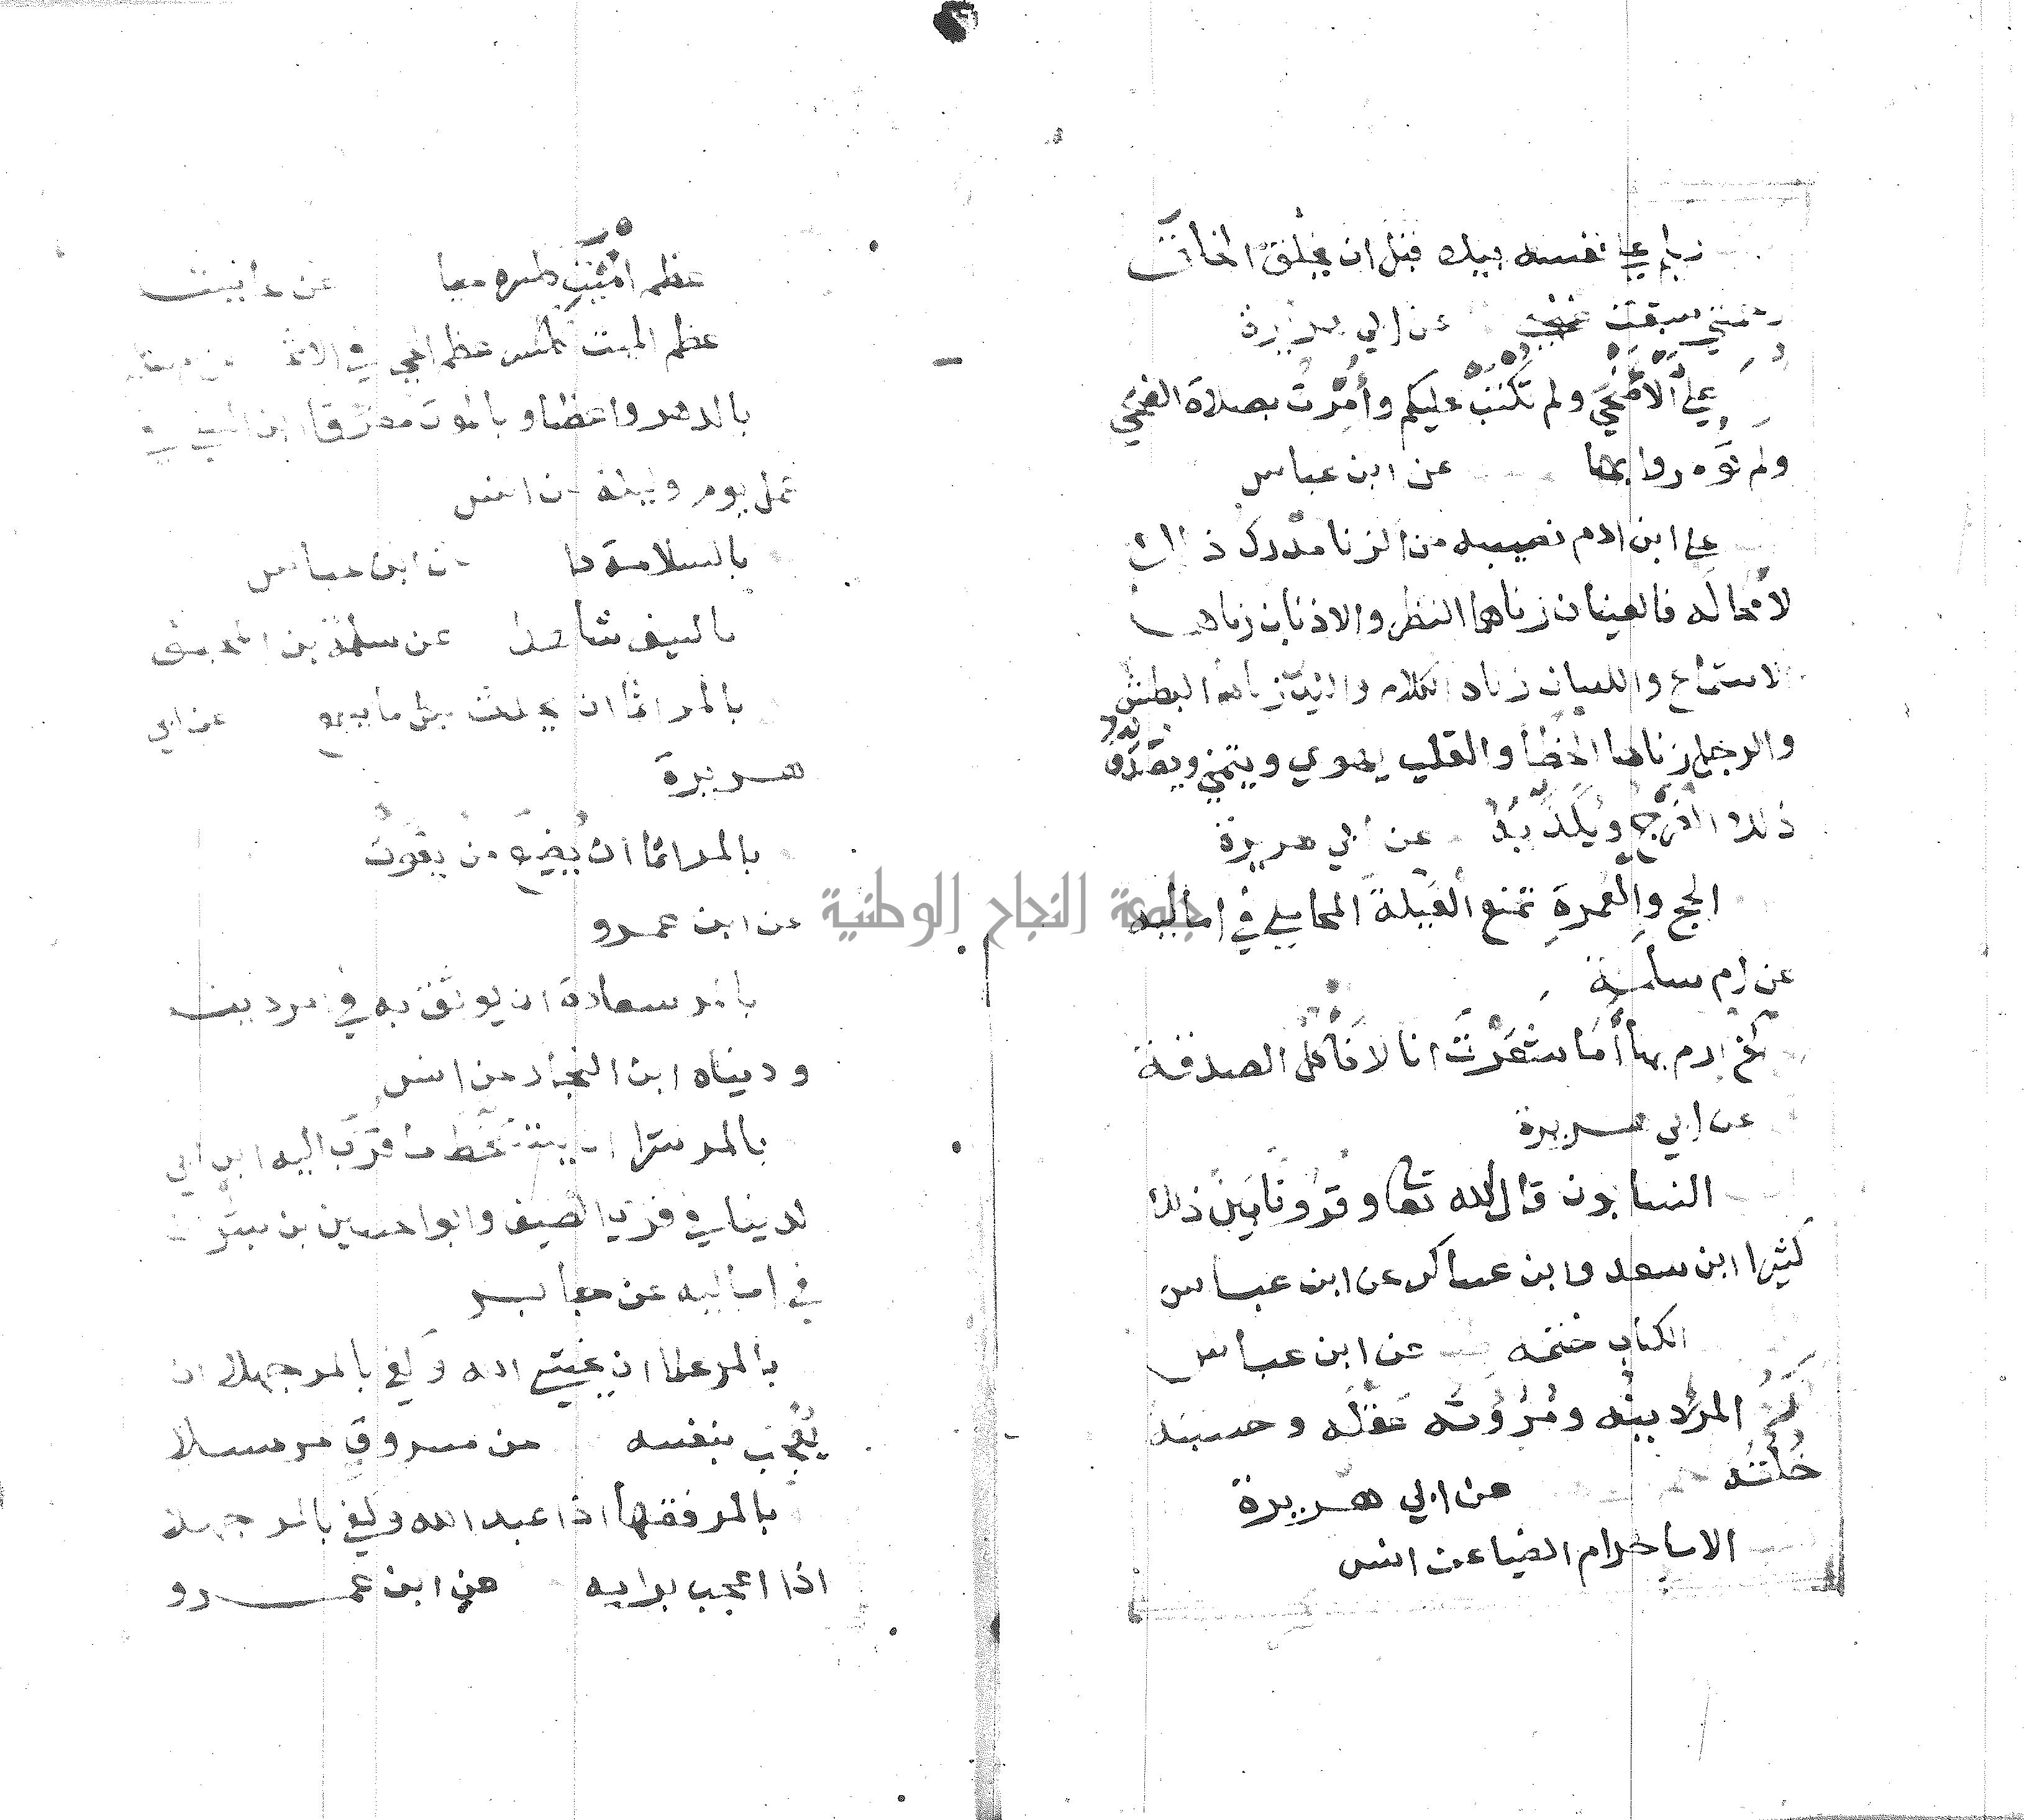 ربكم على نفسه بيده قبل ان يخلق الخلق
رحمتي سبقت غضبي عن ابي هريرة
علي الأَضْحَى ولم تُكْتَبْ عليكم وأُمِرْتُ بصلاة الضحى
ولم تؤمروا بها عن ابن عباس
على ابن ادم نصيبه من الزنا مدرك ذلك
لا محالة فالعينان زناهما النظر والاذنان زناهما
الاستماع واللسان زناه الكلام واليد زناها البطش
والرجل زناها الخُطا والقلب يهوي ويتمنى ويُصَدِّقُ
ذلك الفَرْجُ ويُكَذِّبُهُ عن ابي هريرة
الحج والعمرة تمنع العَيلة المحاملي في اماليه
عن ام سلمة
كخ ارم بها أَمَا شَعَرْتَ انا لا نأكل الصدقة
عن ابي هريرة
النسابون قال الله تعالى وقرونا بين ذلك
كثيرا ابن سعد وابن عساكر عن ابن عباس
الكتاب ختمه عن ابن عباس
المرء دينه ومُرُوءَتُه عقله وحسبه
خُلُقُهُ عن ابي هريرة
حرام الضيا عن انس
عظم
عظم الميت ككسر عظم الحي في الاثم
بالدهر واعظا وبالموت مفرقا ابن السني في
عمل يوم وليلة عن انس
بالسلامة دا عن ابن عباس
بالسيف شاهدا عن سلمة بن المحبق
بالمرء اثما ان يحدث بكل ما سمع عن ابي
هريرة
بالمرء اثما ان يُضِيعَ من يقوت
عن ابن عمرو
بالمرء سعادة ان يوثق به في امر دينه
ودنياه ابن النجار عن انس
بالمرء شرا ان يتسخط ما قرب اليه ابن ابي
الدنيا في قري الضيف وابو الحسين بن بشران
في اماليه عن جابر
بالمرء علما ان يخشى الله وكفى بالمرء جهلا ان
يُعْجَب بنفسه عن مسروق مرسلا
بالمرء فقها اذا عبد الله وكفى بالمرء جهلا
اذا اعجب برايه عن ابن عمرو
جامعة النجاح الوطنية